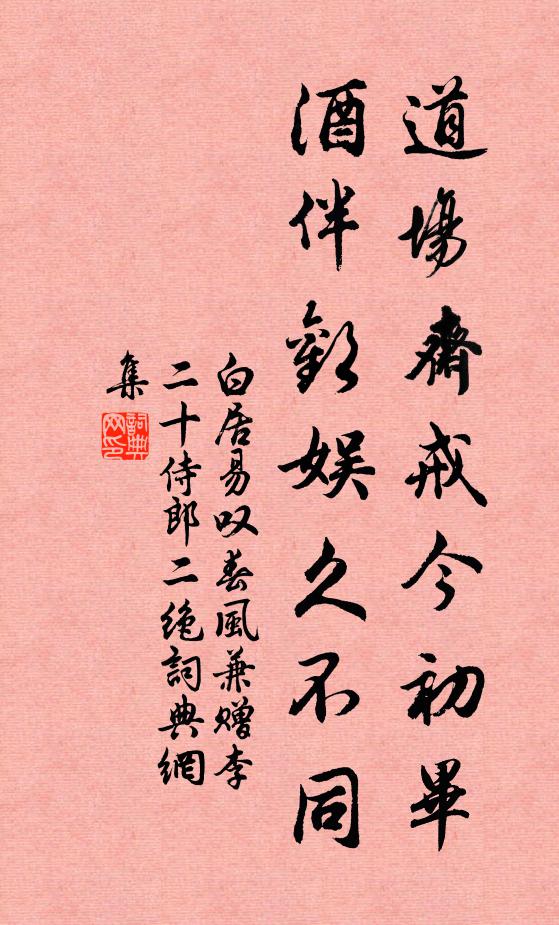 道場齋戒今初畢
酒伴歡娛久不同
白居易叹春風兼赠李
二十侍郎二绝詞典網
集
詞典
网印